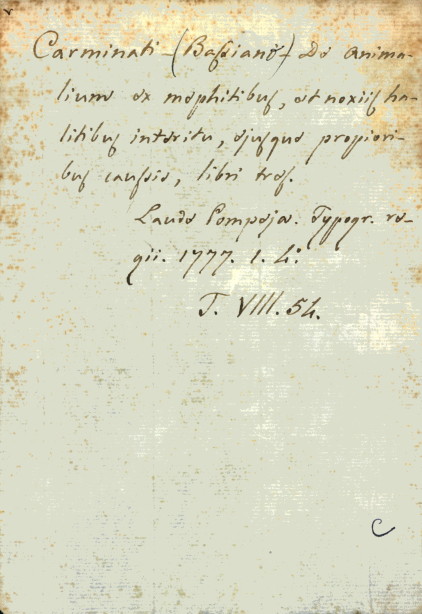 Carminati - (Bassiano) - De Anima-
lium ex mephitibus, et noxiis ha-
litibus interitu, ejusque propiori-
bus caussis, libri tres.
Laude Pompeja. Typogr. re-
gii. 1777. 1. 4.º
T. VIII. 54.
C